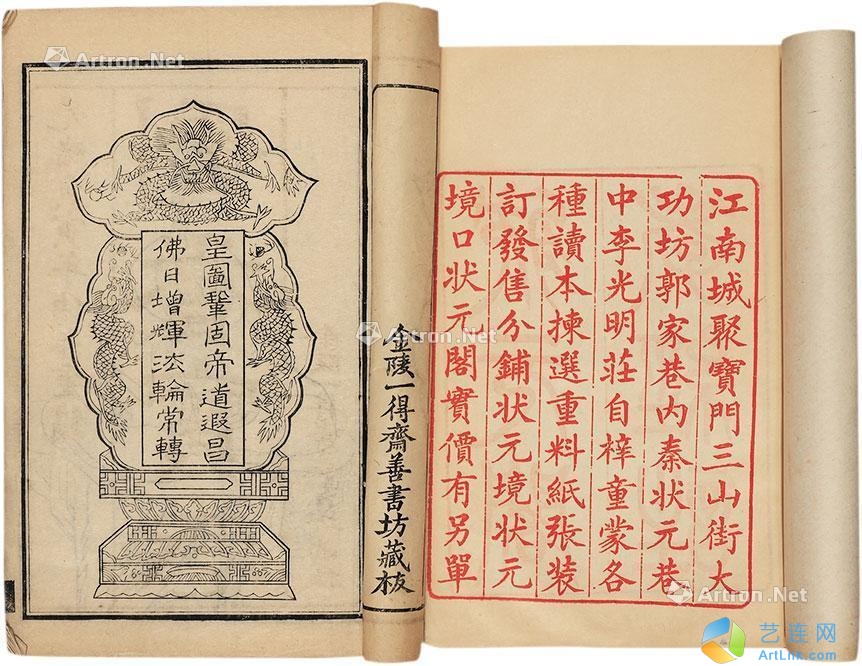 江南城聚寶門三山街大
功坊郭家巷内秦狀元巷
中李光明莊自梓童蒙各
種讀本揀選重料紙張裝
訂發售分鋪狀元境狀元
境口狀元閣實價有另單
金陵一得齋善書坊藏板
皇圖鞏固帝道遐昌
佛日增輝法輪常轉
Artron.Net
Artron.Net
Artron.Net
Artron.Net
艺连网
ArtLnk.com